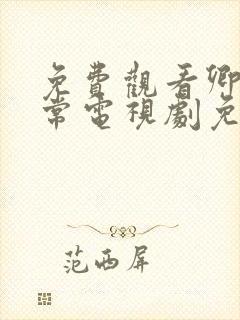 免費觀看卿
常電視劇免
范西屏